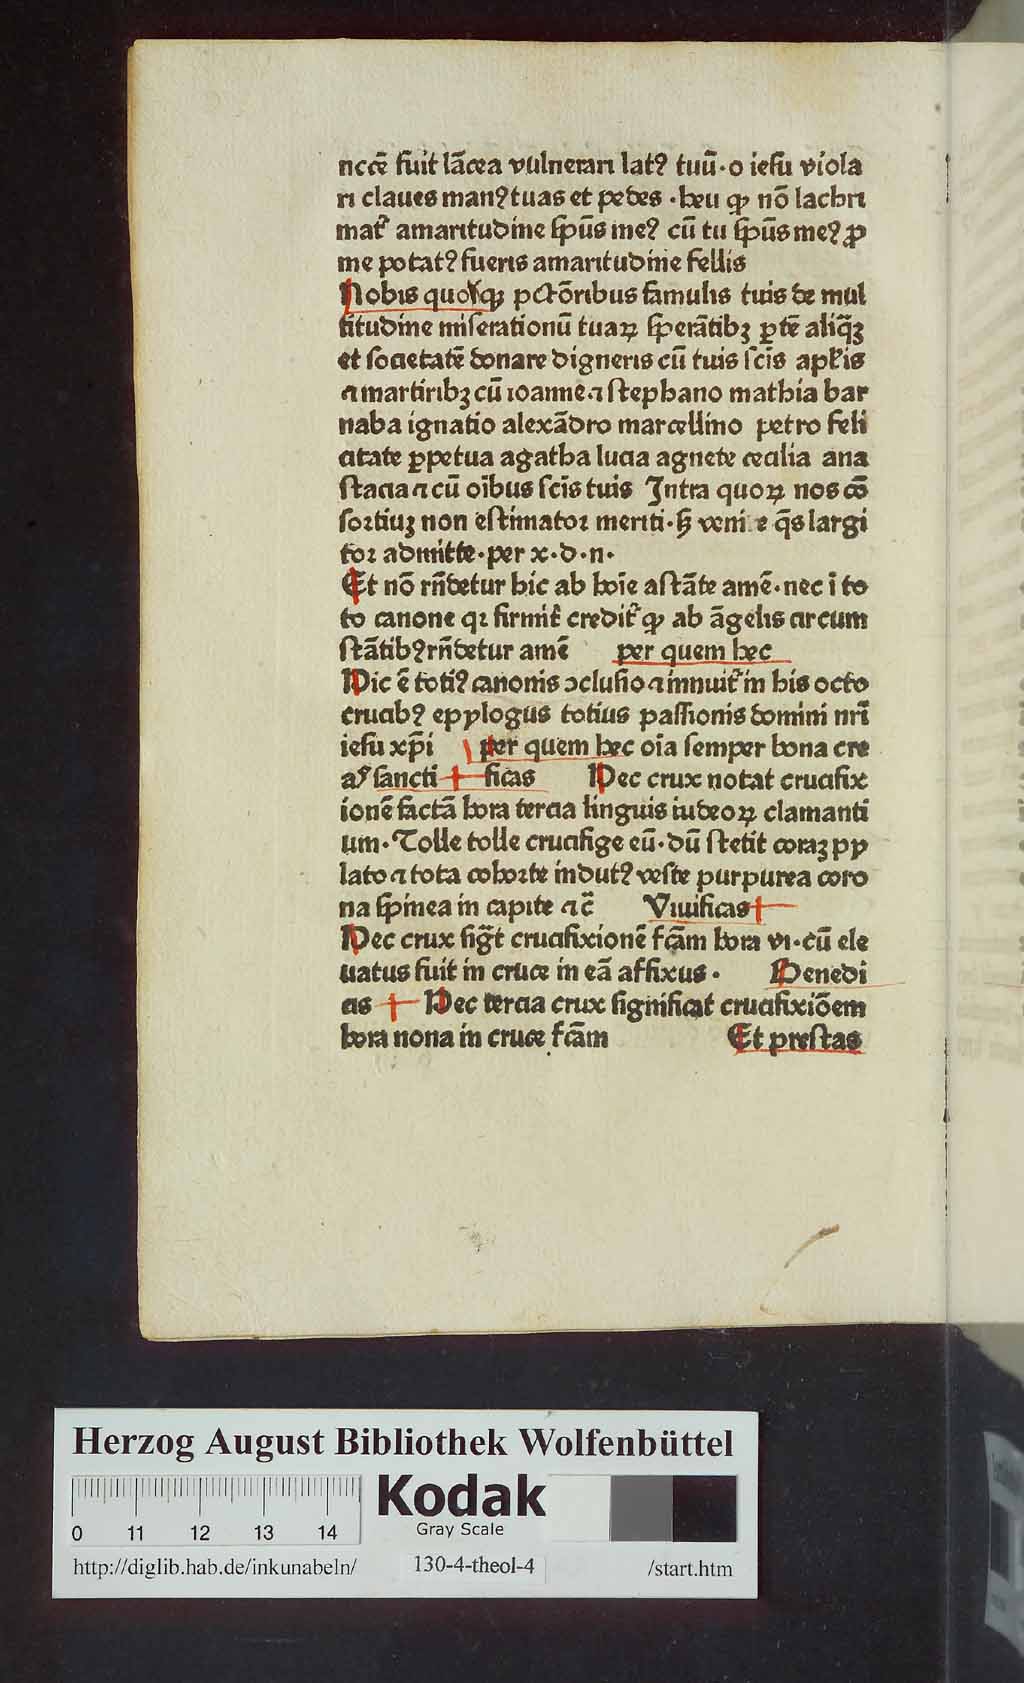 nccē fuit lācea vulnerari latꝰ tuū·o iesu viola
ri claues manꝰ tuas et pedes ·heu ꝙ nō lachri
mat᷑ amaritudine sp̄us meꝰ cū tu sp̄us meꝰ ꝓ
me potatꝰ fueris amaritudine fellis
Nobis quoqꝫ pctōribus famulis tuis de mul
titudine miserationū tuaꝝ sperātibꝫ ꝑtē aliq̄ꝫ
et societatē donare digneris cū tuis scīs apl'is
⁊ martiribꝫ cū ioanne ⁊ stephano mathia bar
naba ignatio alexādro marcellino petro feli
citate ꝑpetua agatha lucia agnete cecilia ana
stacia ⁊ cū oībus scīs tuis Intra quoꝝ nos cō
sortiuꝫ non estimator meriti· sꝫ venie q̄s largi
tor admitte·per x·d·n·
Et nō rn̄detur hic ab hoīe astāte amē·nec ī to
to canone qꝛ firmit᷑ credit᷑ ꝙ ab āgelis circum
stātibꝰ rn̄detur amē per quem hec
Hic ē totiꝰ canonis ɔclusio ⁊ innuit᷑ in his octo
crucibꝰ epylogus totius passionis domini nr̄i
iesu xp̄i per quem hec oīa semper bona cre
as sancti ficas Hec crux notat crucifix
ionē factā hora tercia linguis iudeoꝝ clamanti
um·Tolle tolle crucifige eū·dū stetit coraꝫ py
lato ⁊ tota cohorte indutꝰ veste purpurea coro
na spinea in capite ⁊ c̄ Viuificas
Hec crux sigt̄ crucifixionē fcām hora vi·cū ele
uatus fuit in cruce in eā affixus· Benedi
cis Hec tercia crux significat crucifixiōem
hora nona in cruce fcām Et prestas
Herzog August Bibliothek Wolfenbüttel
0 11 12 13 14
Kodak
Gray Scale
http://diglib.hab.de/inkunabeln/ 130-4-theol-4 /start.htm